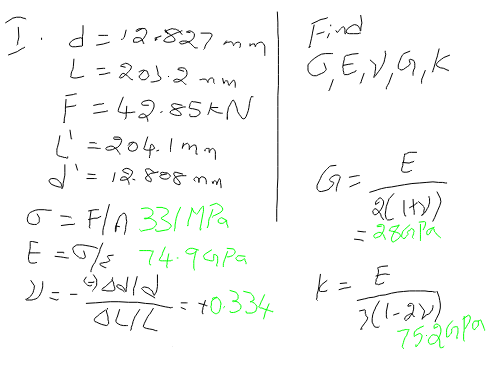 I. d = 12.827 mm
L = 203.2 mm
F = 42.85 kN
L' = 204.1 mm
d' = 12.808 mm
σ = F/A 331 MPa
E = σ/ε 74.9 GPa
ν = - (-)Δd/d / ΔL/L = +0.334
Find
σ, E, ν, G, K
G = E / 2(1+ν)
= 28 GPa
K = E / 3(1-2ν)
75.2 GPa